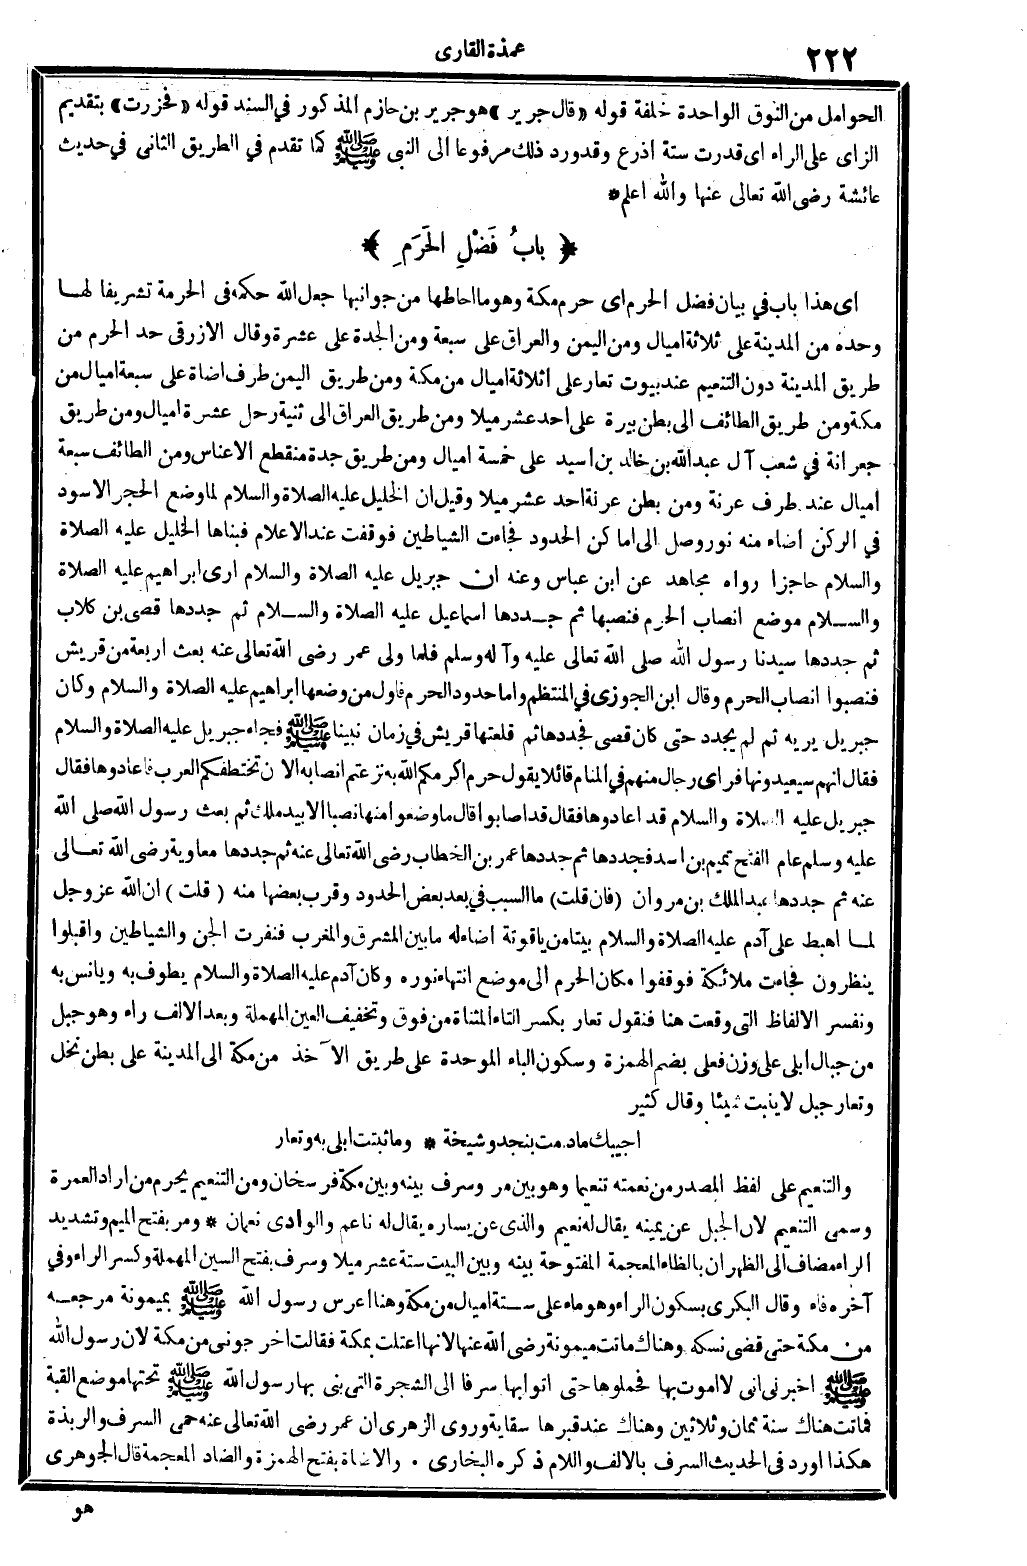 ٢٢٢
عمدة القارى
الحوامل من النوق الواحدة خلفة قوله «قال جرير» هو جرير بن حازم المذكور في السند قوله «فحزرت» بتقديم
الزاى على الراء اى قدرت ستة أذرع وقد ورد ذلك مرفوعا الى النبى ﷺ كما تقدم في الطريق الثانى في حديث
عائشة رضى الله تعالى عنها والله اعلم *
﴿ بابُ فَضْلِ الحَرَمِ ﴾
اى هذا باب في بيان فضل الحرم اى حرم مكة وهو ما احاطها من جوانبها جعل الله حكمه فى الحرمة تشريفا لهـا
وحده من المدينة على ثلاثة اميال ومن اليمن والعراق على سبعة ومن الجدة على عشرة وقال الازرقى حد الحرم من
طريق المدينة دون التنعيم عند بيوت تعار على ثلاثة اميال من مكة ومن طريق اليمن طرف اضاة على سبعة اميال من
مكة ومن طريق الطائف الى بطن بيرة على احد عشر ميلا ومن طريق العراق الى ثنية رحل عشرة اميال ومن طريق
جعرانة في شعب آل عبد الله بن خالد بن اسيد على خمسة اميال ومن طريق جدة منقطع الاعناس ومن الطائف سبعة
أميال عند طرف عرنة ومن بطن عرنة احد عشر ميلا وقيل ان الخليل عليه الصلاة والسلام لما وضع الحجر الاسود
في الركن أضاء منه نور وصل الى اماكن الحدود فجاءت الشياطين فوقفت عند الاعلام فبناها الخليل عليه الصلاة
والسلام حاجزا رواه مجاهد عن ابن عباس وعنه ان جبريل عليه الصلاة والسلام ارى ابراهيم عليه الصلاة
والسـلام موضع انصاب الحرم فنصبها ثم جـددها اسماعيل عليه الصلاة والسـلام ثم جددها قصى بن كلاب
ثم جددها سيدنا رسول الله صلى الله تعالى عليه وآله وسلم فلما ولى عمر رضى الله تعالى عنه بعث اربعة من قريش
فنصبوا انصاب الحرم وقال ابن الجوزى في المنتظم واما حدود الحرم فاول من وضعها ابراهيم عليه الصلاة والسلام وكان
جبريل يريه ثم لم يجدد حتى كان قصى فجددها ثم قلعتها قريش في زمان نبينا ﷺ فجاء جبريل عليه الصلاة والسلام
فقال انهم سيعيدونها فرأى رجال منهم في المنام قائلا يقول حرم اكرمكم الله به نزعتم انصابه الآن تختطفكم العرب فاعادوها فقال
جبريل عليه الصلاة والسلام قد اعادوها فقال قد اصابوا قال ما وضعوا منها نصبا الا بيد ملك ثم بعث رسول الله صلى الله
عليه وسلم عام الفتح تميم بن اسد فجددها ثم جددها عمر بن الخطاب رضى الله تعالى عنه ثم جددها معاوية رضى الله تعـالى
عنه ثم جددها عبد الملك بن مروان (فان قلت) ما السبب في بعد بعض الحدود وقرب بعضها منه (قلت) ان الله عز وجل
لمـا اهبط على آدم عليه الصلاة والسلام بيتا من ياقوتة اضاء له ما بين المشرق والمغرب فنفرت الجن والشياطين واقبلوا
ينظرون فجاءت ملائكة فوقفوا مكان الحرم الى موضع انتهاء نوره وكان آدم عليه الصلاة والسلام يطوف به ويانس به
ونفسر الالفاظ التى وقعت هنا فنقول تعار بكسر التاء المثناة من فوق وتخفيف العين المهملة وبعد الالف راء وهو جبل
من جبال ابلى على وزن فعلى بضم الهمزة وسكون الباء الموحدة على طريق الآخذ من مكة الى المدينة على بطن نخل
وتعار جبل لا ينبت شيئا وقال كثير
اجيبك ما دمت بنجد وشيخة * وما ثبتت ابلى به وتعار
والتنعيم على لفظ المصدر من نعمته تنعيما وهو بين مر وسرف بينه وبين مكة فرسخان ومن التنعيم يحرم من اراد العمرة
وسمى التنعيم لان الجبل عن يمينه يقال له نعيم والذى عن يساره يقال له ناعم والوادى نعمان * ومر بفتح الميم وتشديد
الراء مضاف الى الظهران بالظاء المعجمة المفتوحة بينه وبين البيت ستة عشر ميلا وسرف بفتح السين المهملة وكسر الراء وفي
آخره فاء وقال البكرى بسكون الراء وهو ماء على ستـة اميال من مكة وهنا اعرس رسول الله ﷺ بميمونة مرجعـه
من مكة حتى قضى نسكه وهناك ماتت ميمونة رضى الله عنها لانها اعتلت بمكة فقالت اخرجونى من مكة لان رسول الله
ﷺ اخبرنى انى لا اموت بها فحملوها حتى اتوا بها سرفا الى الشجرة التى بنى بها رسول الله ﷺ تحتها موضع القبة
فماتت هناك سنة ثمان وثلاثين وهناك عند قبرها سقاية وروى الزهرى ان عمر رضى الله تعالى عنه حمى السرف والربذة
هكذا اورد فى الحديث السرف بالالف واللام ذكره البخارى . والاضاة بفتح الهمزة والضاد المعجمة قال الجوهرى
هو